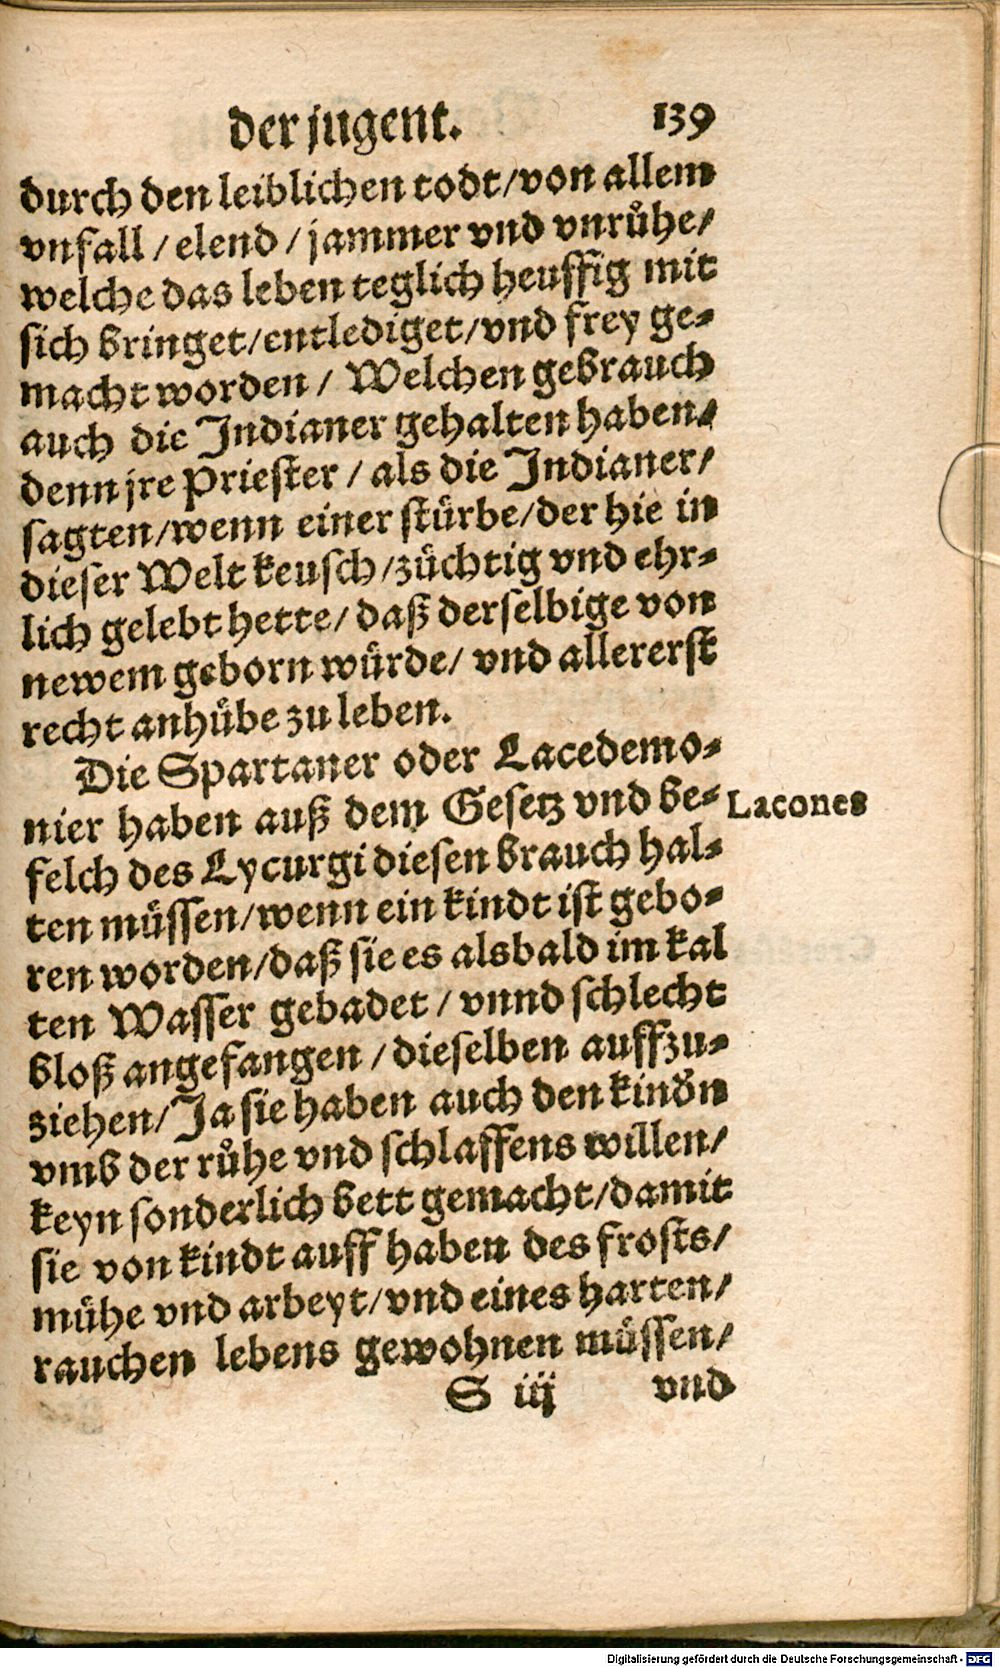 der jugent. 139
durch den leiblichen todt/von allem
vnfall / elend / jammer vnd vnrůhe/
welche das leben teglich heuffig mit
sich bringet/entlediget/vnd frey ge⸗
macht worden / Welchen gebrauch
auch die Indianer gehalten haben/
denn jre Priester / als die Indianer/
sagten/wenn einer stürbe/der hie in
dieser Welt keusch/züchtig vnd ehr⸗
lich gelebt hette/ daß derselbige von
newem geborn würde/ vnd allererst
recht anhübe zu leben.
Die Spartaner oder Lacedemo⸗
nier haben auß dem Gesetz vnd be⸗ Lacones
felch des Lycurgi diesen brauch hal⸗
ten müssen/wenn ein kindt ist gebo⸗
ren worden/daß sie es alsbald im kal
ten Wasser gebadet / vnnd schlecht
bloß angefangen / dieselben auffzu⸗
ziehen/ Ja sie haben auch den kindn
vmb der růhe vnd schlaffens willen/
keyn sonderlich bett gemacht/damit
sie von kindt auff haben des frosts/
mühe vnd arbeyt/vnd eines harten/
rauchen lebens gewohnen müssen/
S iij vnd
Digitalisierung gefördert durch die Deutsche Forschungsgemeinschaft - DFG